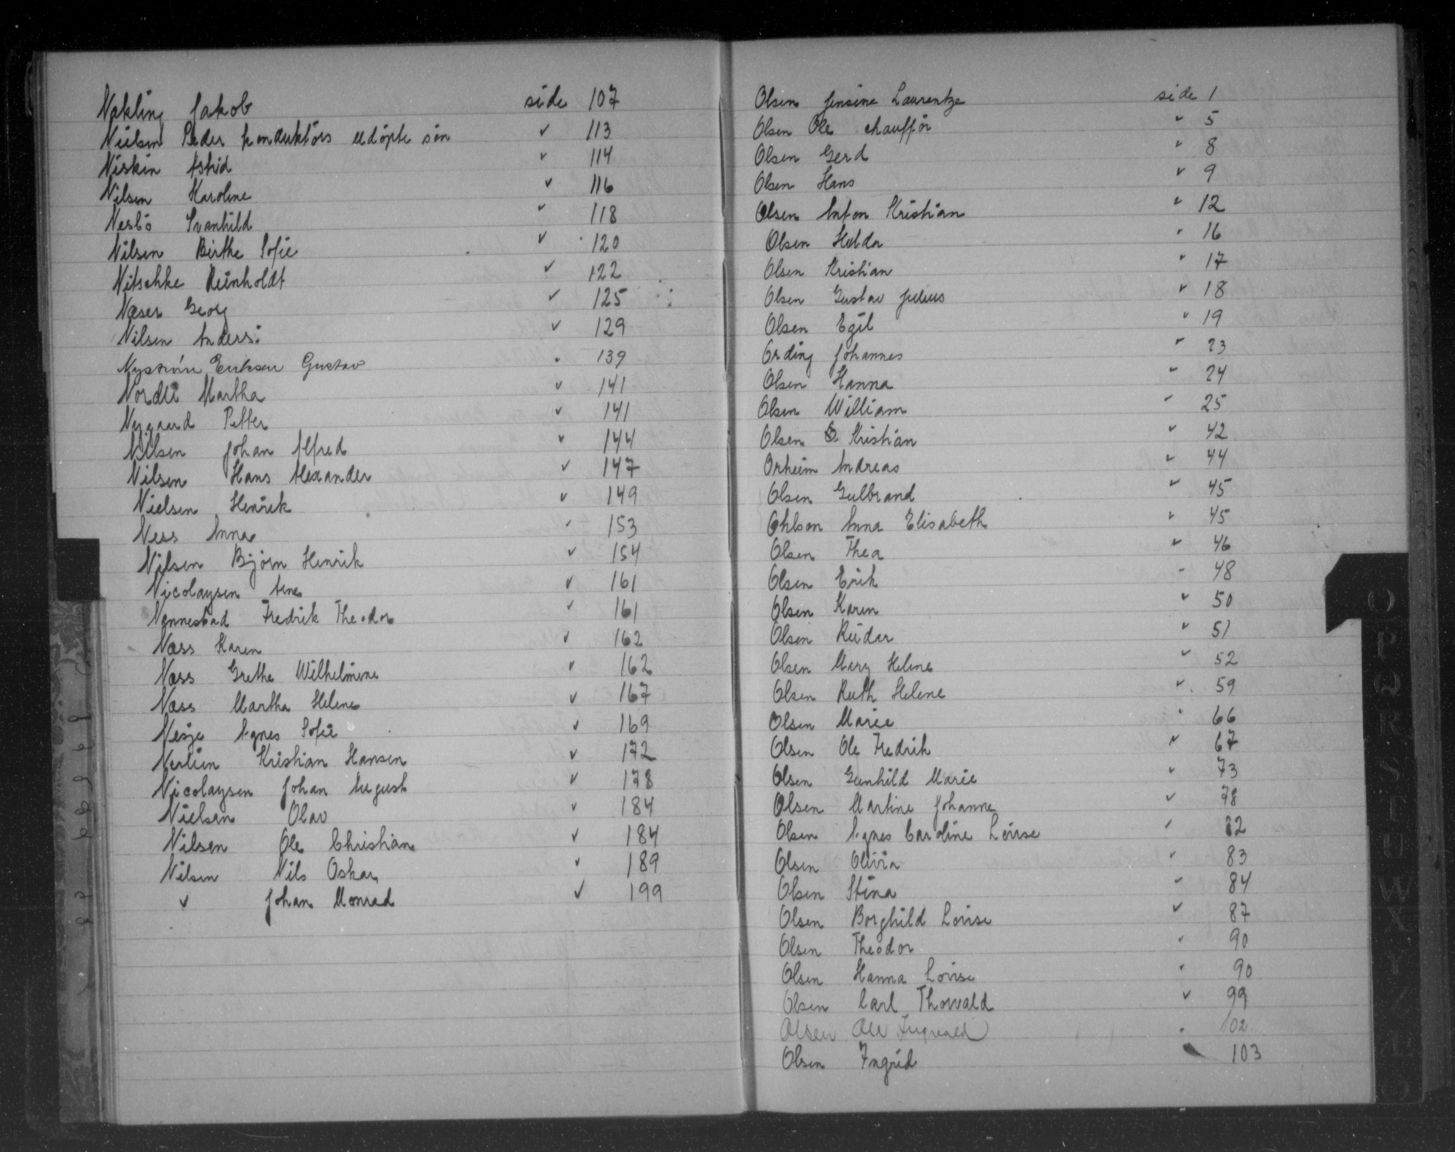 Nøkling Jakob side 107
Nielsen Peder konduktørs udöpte sön " 113
Niskin Astrid " 114
Nilsen Karoline " 116
Nesbö Svanhild " 118
Nilsen Birthe Sofie " 120
Nitschke Reinholdt " 122
Næser Georg " 125
Nilsen Anders " 129
Eriksen Gustav " 139
Nordli Martha " 141
Nygaard Petter " 141
Nilsen Johan Alfred " 144
Nilsen Hans Alexander " 147
Nielsen Henrik " 149
Ness Anna " 153
Nilsen Bjørn Henrik " 154
Nicolaysen Arne " 161
Nennestad Fredrik Theodor " 161
Næss Karen " 162
Næss Grethe Wilhelmine " 162
Næss Martha Helene " 167
Nesje Agnes Sofie " 169
Nerlien Kristian Hansen " 172
Nicolaysen Johan August " 178
Nielsen Olav " 184
Nilsen Ole Christian " 184
Nilsen Nils Oskar " 189
" Johan Monrad " 199
Olsen Jensine Laurentze side 1
Olsen Ole chauffør " 5
Olsen Gerd " 8
Olsen Hans " 9
Olsen Anton Kristian " 12
Olsen Hulda " 16
Olsen Kristian " 17
Olsen Gustav Julius " 18
Olsen Egil " 19
Ording Johannes " 23
Olsen Hanna " 24
Olsen William " 25
Olsen O. Kristian " 42
Orheim Andreas " 44
Olsen Gulbrand " 45
Ohlson Anna Elisabeth " 45
Olsen Thea " 46
Olsen Erik " 48
Olsen Karen " 50
Olsen Reidar " 51
Olsen Mary Helene " 52
Olsen Ruth Helene " 59
Olsen Marie " 66
Olsen Ole Fredrik " 67
Olsen Gunhild Marie " 73
Olsen Martine Johanne " 78
Olsen Agnes Caroline Lovise " 82
Olsen Olivia " 83
Olsen Stina " 84
Olsen Borghild Lovise " 87
Olsen Theodor " 90
Olsen Hanna Lovise " 90
Olsen Carl Thorvald " 99
Olsen Ole Ingvald " 102
Olsen Ingrid " 103
O
P
Q
R
S
T
U
W
X